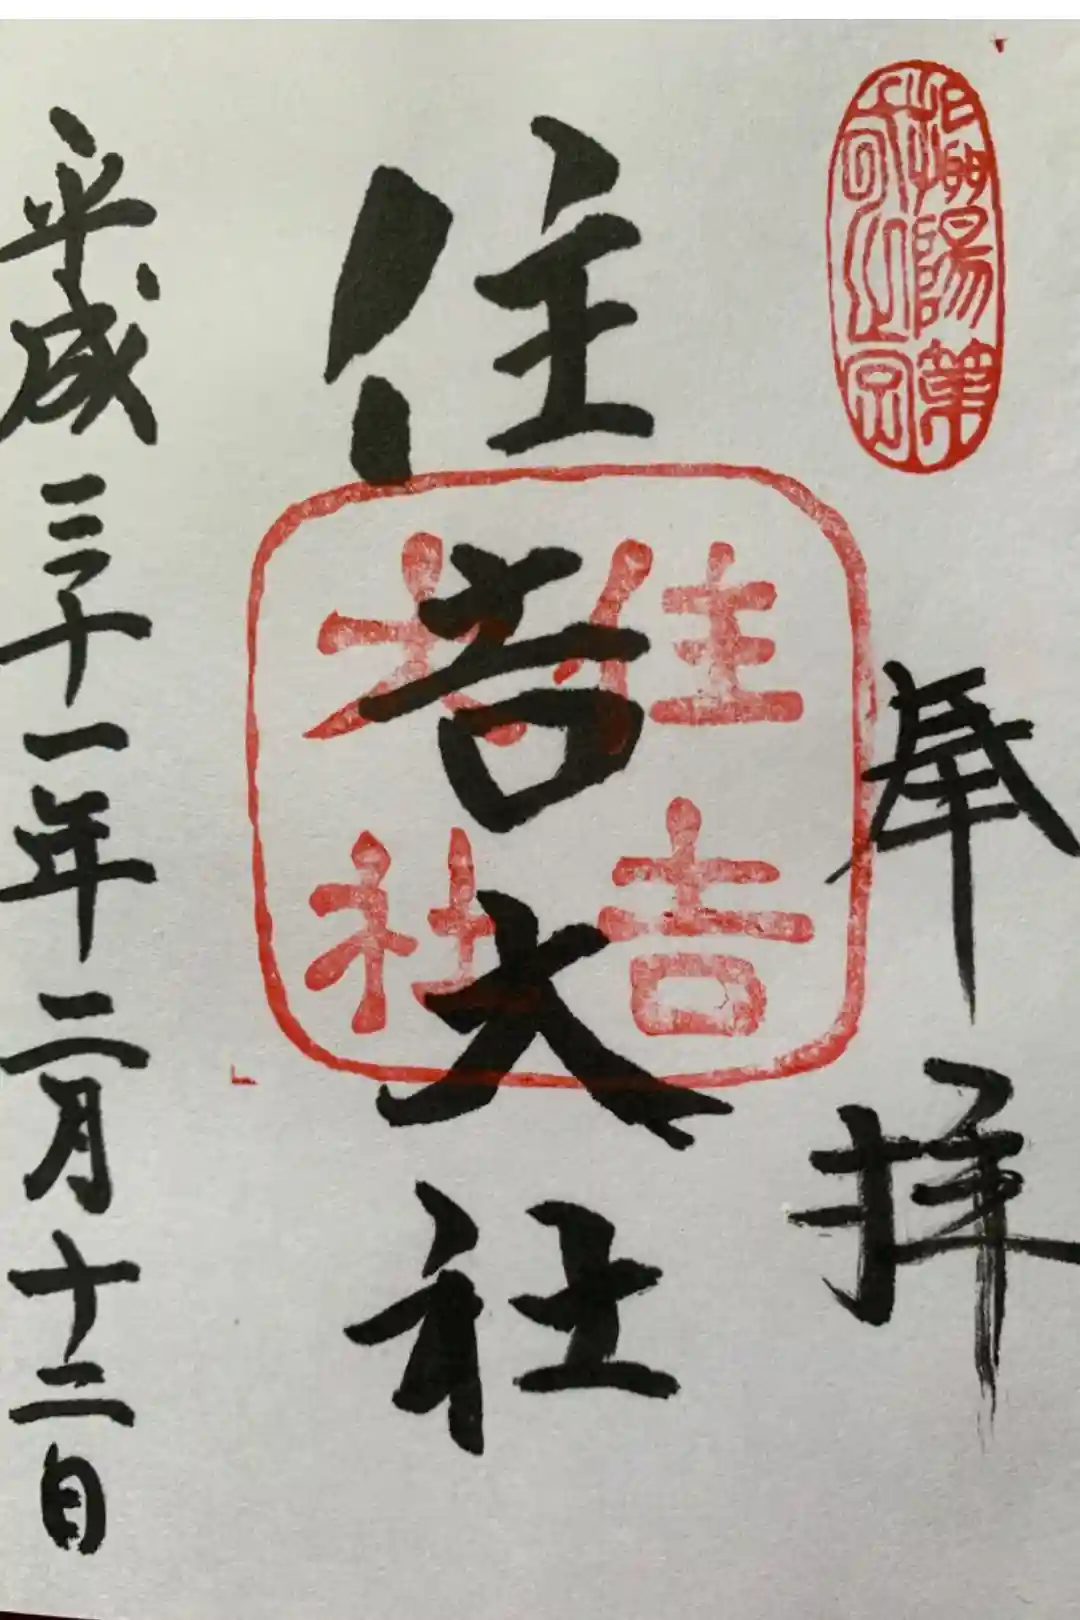 摂陽第一宮
奉拝
住吉大社
住吉大社
平成三十一年二月十二日